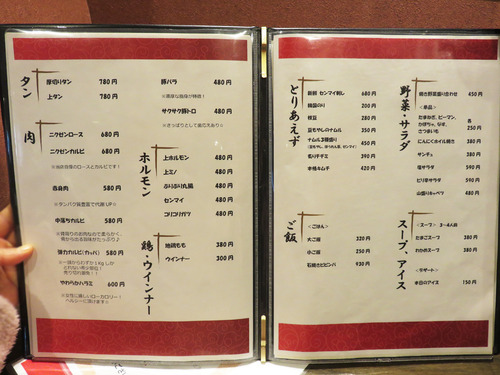 タン
厚切りタン 780円
上タン 780円
肉
ニクゼンロース 680円
ニクゼンカルビ 680円
※当前自慢のロースとカルビです！
赤身肉 580円
※タンパク質豊富で代謝UP☆
中落ちカルビ 580円
弾力カルビ(カッパ) 580円
※一頭からわずか1Kgしか
とれない希少部位！
売り切れ御免！！
やわらかハラミ 600円
※女性に嬉しいローカロリー！
ヘルシーに頂けます☆
豚バラ 480円
※濃厚な脂身が特徴！
サクサク豚トロ 480円
※さっぱりとして歯ごたえあり☆
ホルモン
上ホルモン 480円
上ミノ 480円
ぷりぷり丸腸 480円
センマイ 480円
コリコリガツ 480円
鶏・ウインナー
地鶏もも 380円
ウインナー 300円
とりあえず
新鮮 センマイ刺し 680円
韓国のり 200円
枝豆 280円
豆もやしのナムル 350円
ナムル3種盛り 450円
(豆もやし、ほうれん草、ゼンマイ)
炙りチヂミ 390円
本格キムチ 420円
ご飯
<ごはん>
大ご飯 320円
小ご飯 250円
石焼きビビンバ 930円
野菜・サラダ
焼き野菜盛り合わせ 450円
<単品>
たまねぎ、ピーマン、 各
かぼちゃ、なす、
さつまいも 250円
にんにくホイル焼き 380円
サンチュ 380円
塩サラダ 590円
ピリ辛サラダ 590円
山盛りキャベツ 480円
スープ、アイス
<スープ> 3～4人前
たまごスープ 380円
わかめスープ 380円
<デザート>
本日のアイス 150円